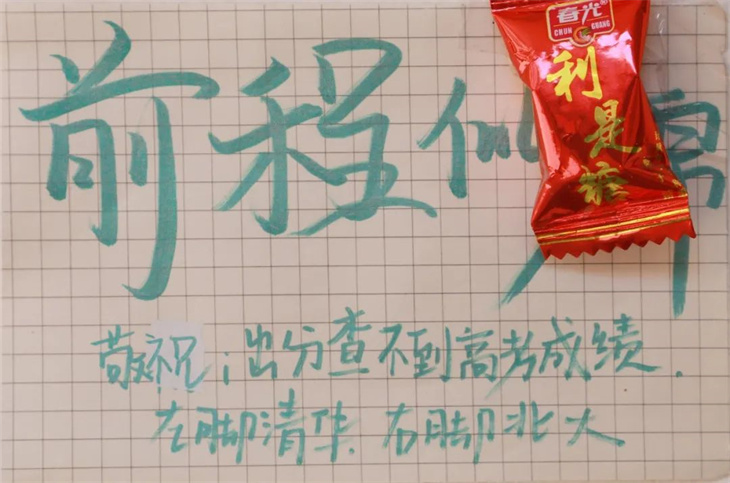 前程似
春光®
CHUN GUANG
利是糖
敬祝；出分查不到高考成绩.
左脚清华.右脚北大